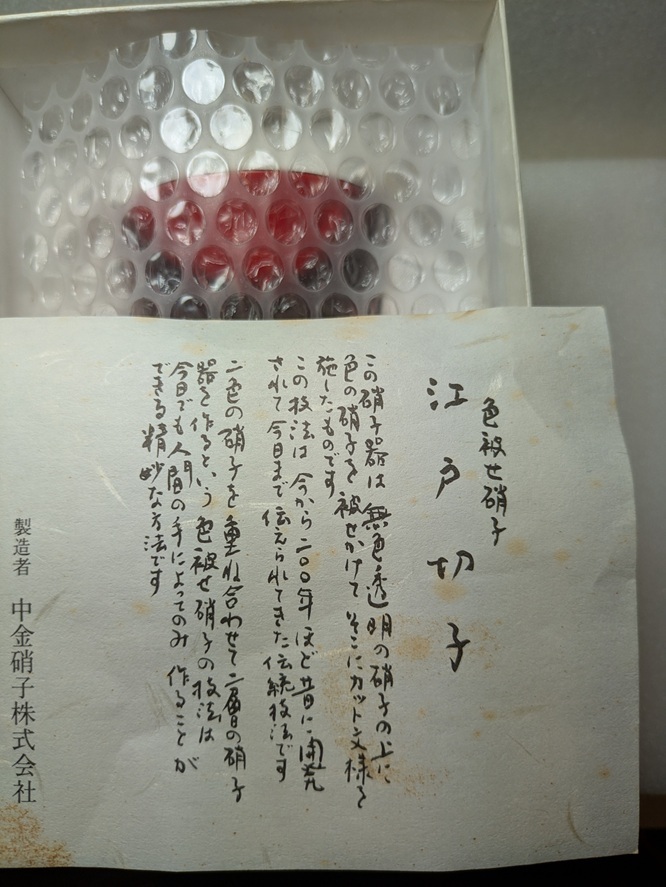 色被せ硝子
江戸切子
この硝子器は 無色透明の硝子の上に
色の硝子を 被せかけて そこにカット文様を
施したものです
この技法は 今から二〇〇年ほど昔に開発
されて 今日まで伝えられてきた伝統技法です
二色の硝子を 重ね合わせて二層の硝子
器を作るという 色被せ硝子の技法は
今日でも人間の手によってのみ 作ることが
できる精妙な方法です
製造者 中金硝子株式会社